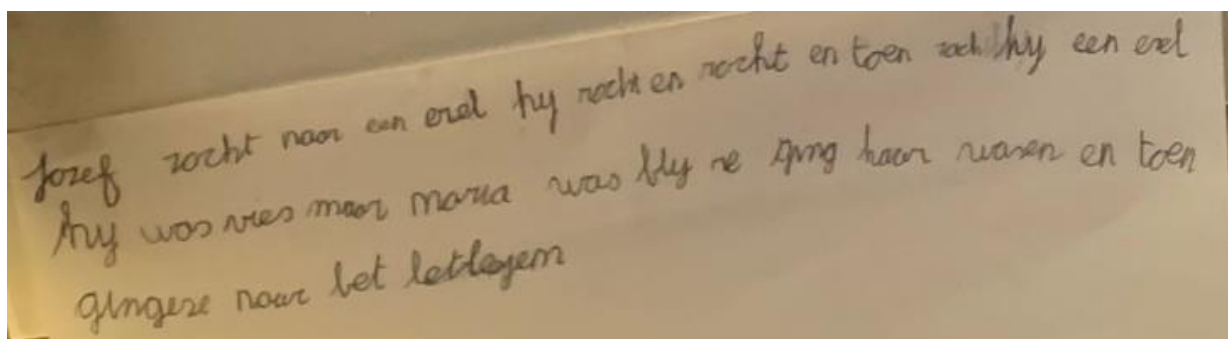 Jozef zocht naar een ezel hy zocht en zocht en toen zach hy een ezel
hy was vies maar maria was bly ze ging haar wasen en toen
gingeze naar bet letlegem